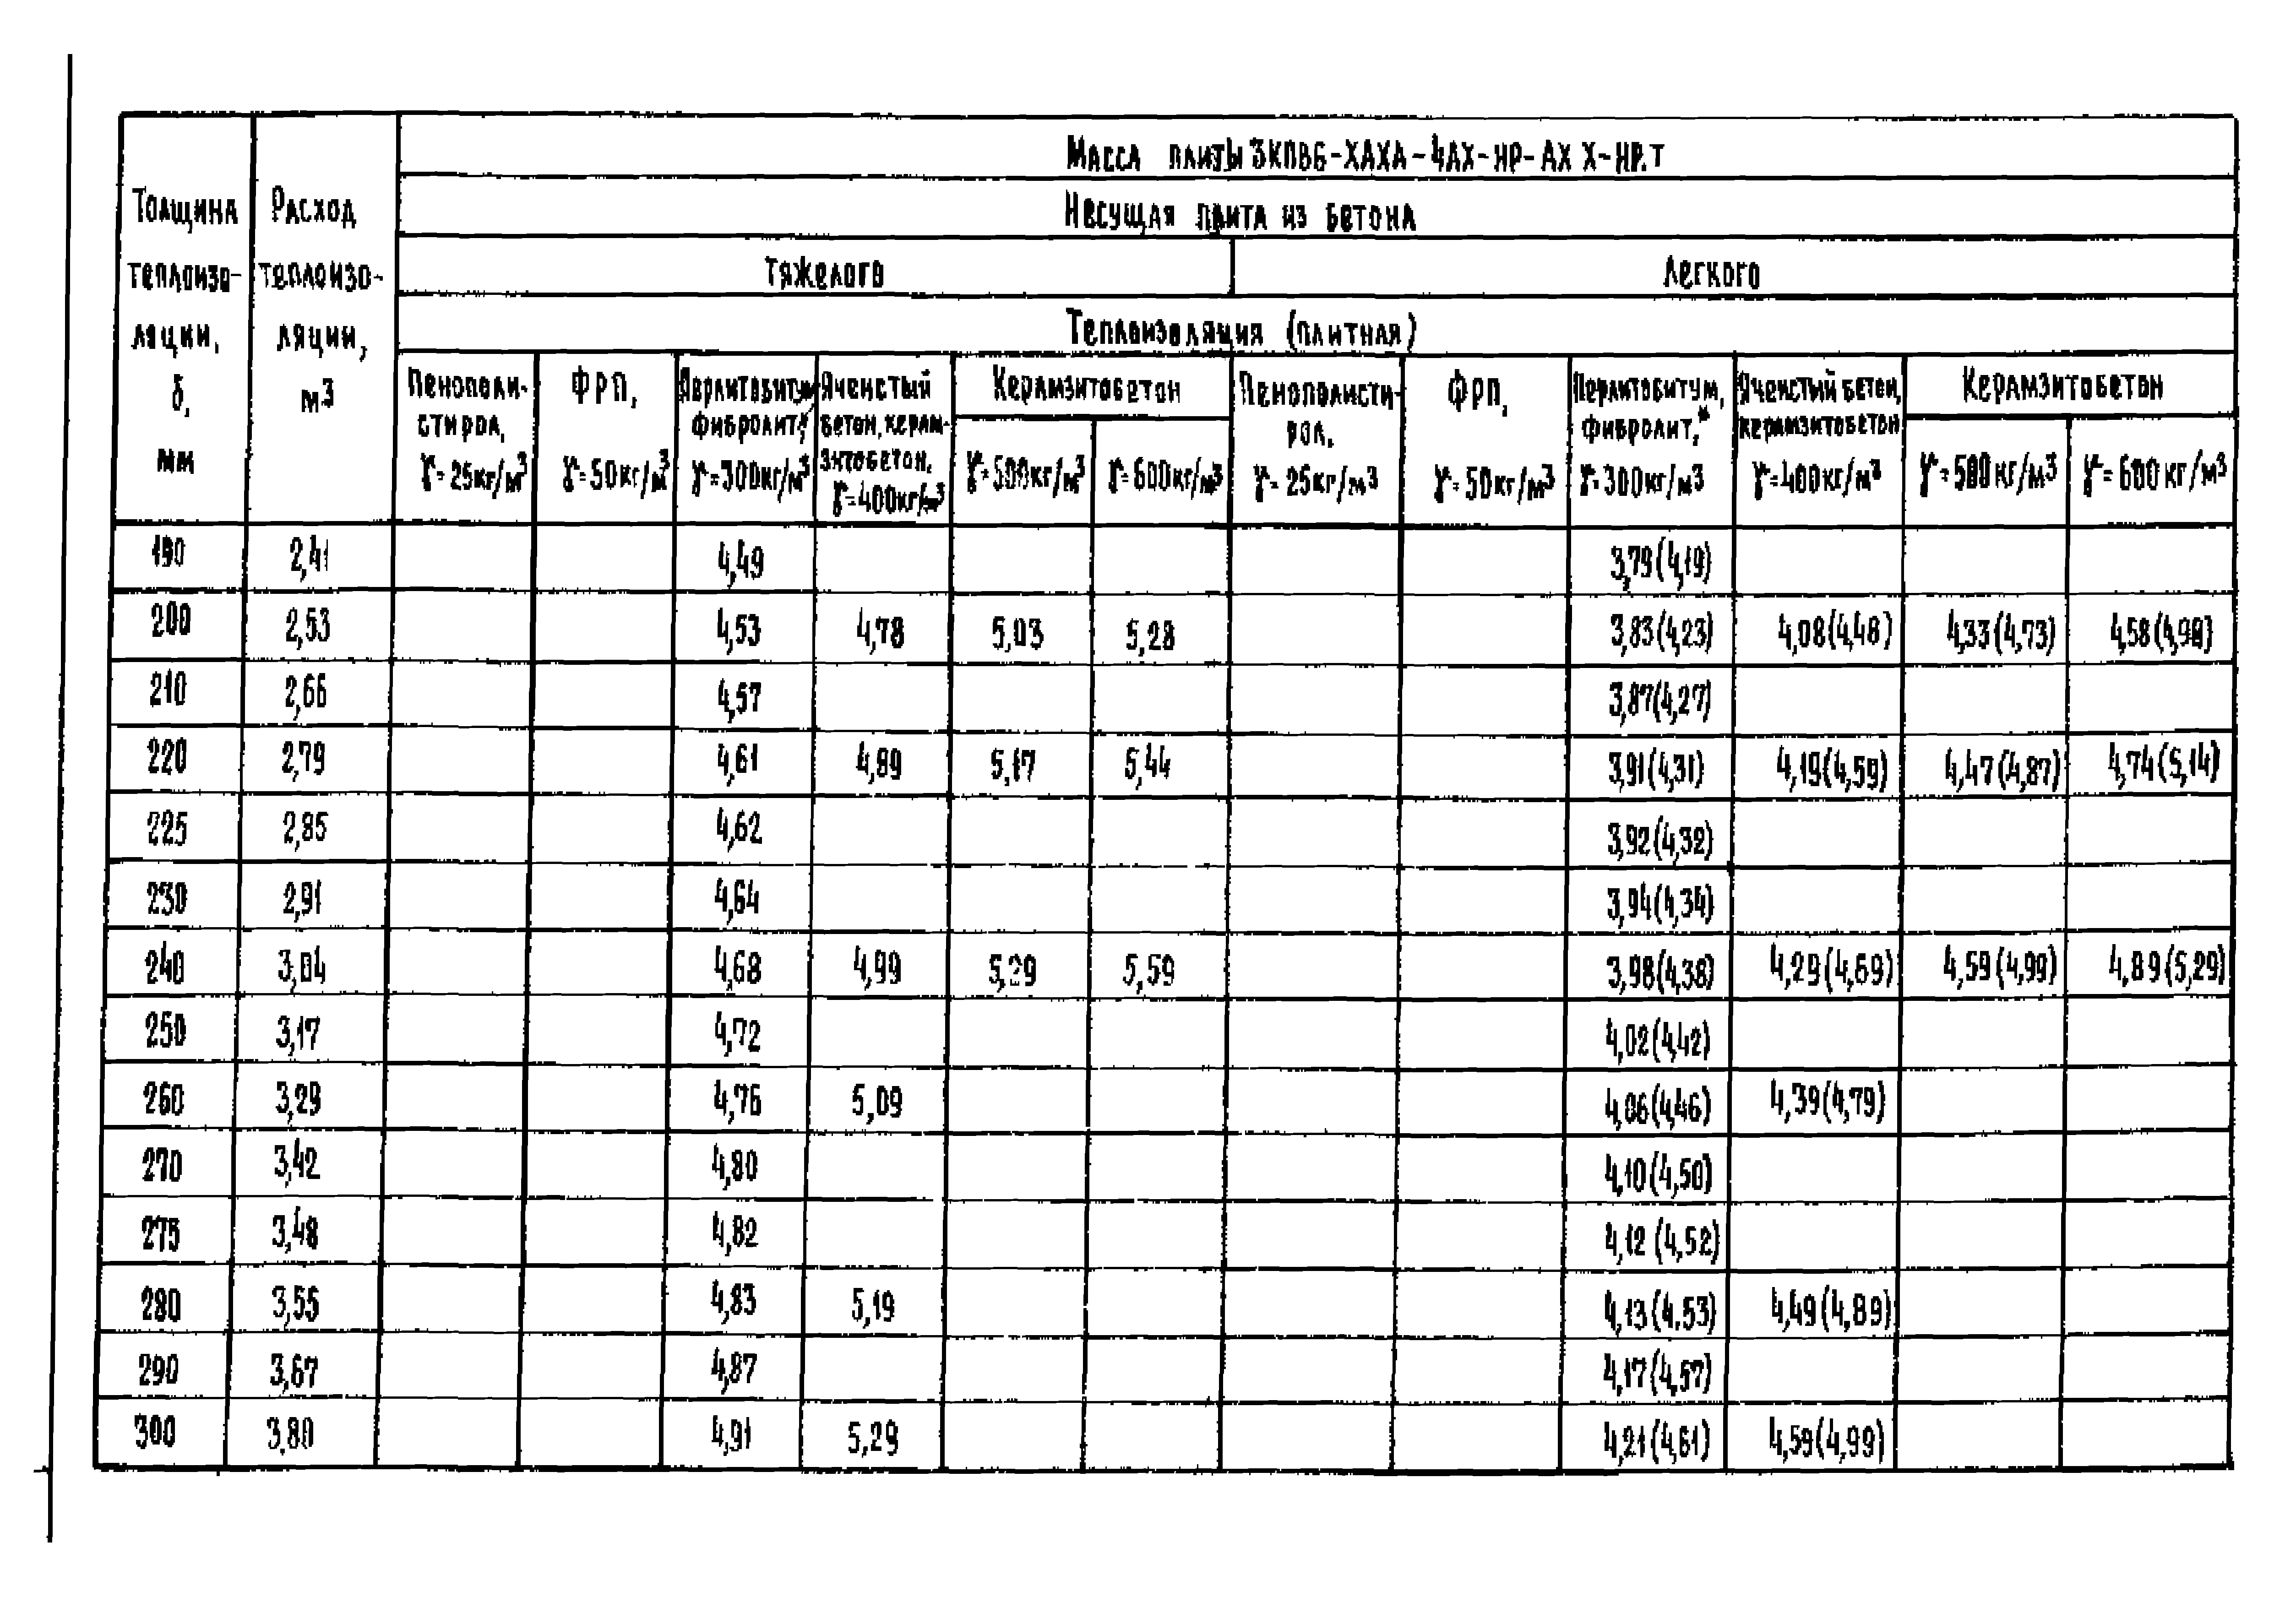 Масса плиты 3КПВ6-ХАХА-4АХ-НР-АХ Х-НР.Т
Толщина теплоизоляции, δ, мм
Расход теплоизоляции, м3
Несущая плита из бетона
тяжелого легкого
Теплоизоляция (плитная)
Пенополистирол, γ=25кг/м3
ФРП, γ=50кг/м3
Перлитобитум, фибролит,* γ=300кг/м3
Ячеистый бетон, керамзитобетон, γ=400кг/м3
Керамзитобетон
γ=500кг/м3 γ=600кг/м3
Пенополистирол, γ=25кг/м3
ФРП, γ=50кг/м3
Перлитобитум, фибролит,* γ=300кг/м3
Ячеистый бетон, керамзитобетон γ=400кг/м3
Керамзитобетон
γ=500кг/м3 γ=600кг/м3
190 2,41 4,49 3,79(4,19)
200 2,53 4,53 4,78 5,03 5,28 3,83(4,23) 4,08(4,48) 4,33(4,73) 4,58(4,98)
210 2,66 4,57 3,87(4,27)
220 2,79 4,61 4,89 5,17 5,44 3,91(4,31) 4,19(4,59) 4,47(4,87) 4,74(5,14)
225 2,85 4,62 3,92(4,32)
230 2,91 4,64 3,94(4,34)
240 3,04 4,68 4,99 5,29 5,59 3,98(4,38) 4,29(4,69) 4,59(4,99) 4,89(5,29)
250 3,17 4,72 4,02(4,42)
260 3,29 4,76 5,09 4,06(4,46) 4,39(4,79)
270 3,42 4,80 4,10(4,50)
275 3,48 4,82 4,12 (4,52)
280 3,55 4,83 5,19 4,13(4.53) 4,49(4,89)
290 3,67 4,87 4,17(4,57)
300 3,80 4,91 5,29 4,21(4,61) 4,59(4,99)